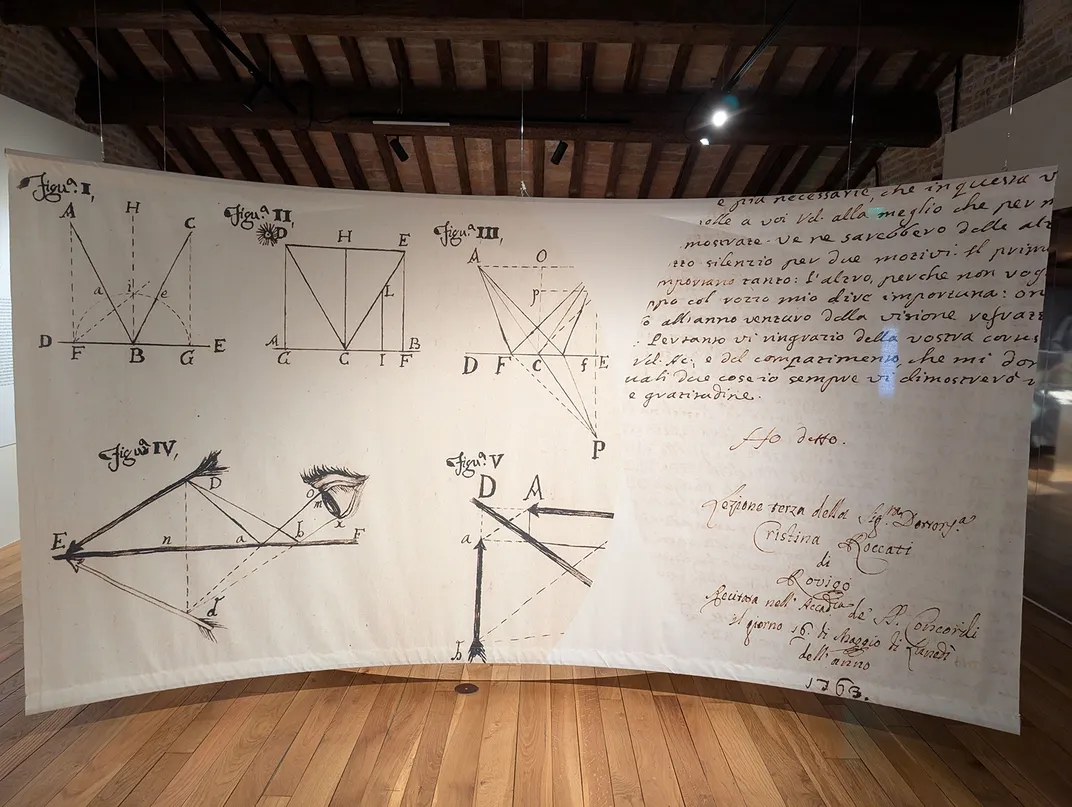 Figu.ᵃ I,
A H C
a i e
D F B G E
Figu.ᵃ II,
D H E
L
A B
G C I F
Figu.ᵃ III,
A O
p
D F C f E
P
Figu.ᵃ IV,
D
O
m
x
E n a b F
d
Figu.ᵃ V
D A
a
b
e più necessarie, che in questa v
olle a voi Vd: alla meglio che per m
mostrate. Ve ne sarebbero delle alt
tto silenzio per due motivi: Il prim
mportano tanto: l'altro, perche non vog
po col rozzo mio dire importuna: on
ò all'anno venturo della visione refratt
Pertanto vi ringrazio della vostra cortes
Vd: &c: e del compatimento, che mi don
uali due cose io sempre vi dimostrerò
e gratitudine.
Ho detto.
Lezione terza della Sig.ʳᵃ Dottor.ᵃ
Cristina Roccati
di
Rovigo
Recitata nell' Accad.ᵃ de' SS. Concordi
il giorno 16. di Maggio di Lunedì
dell' anno
1763.